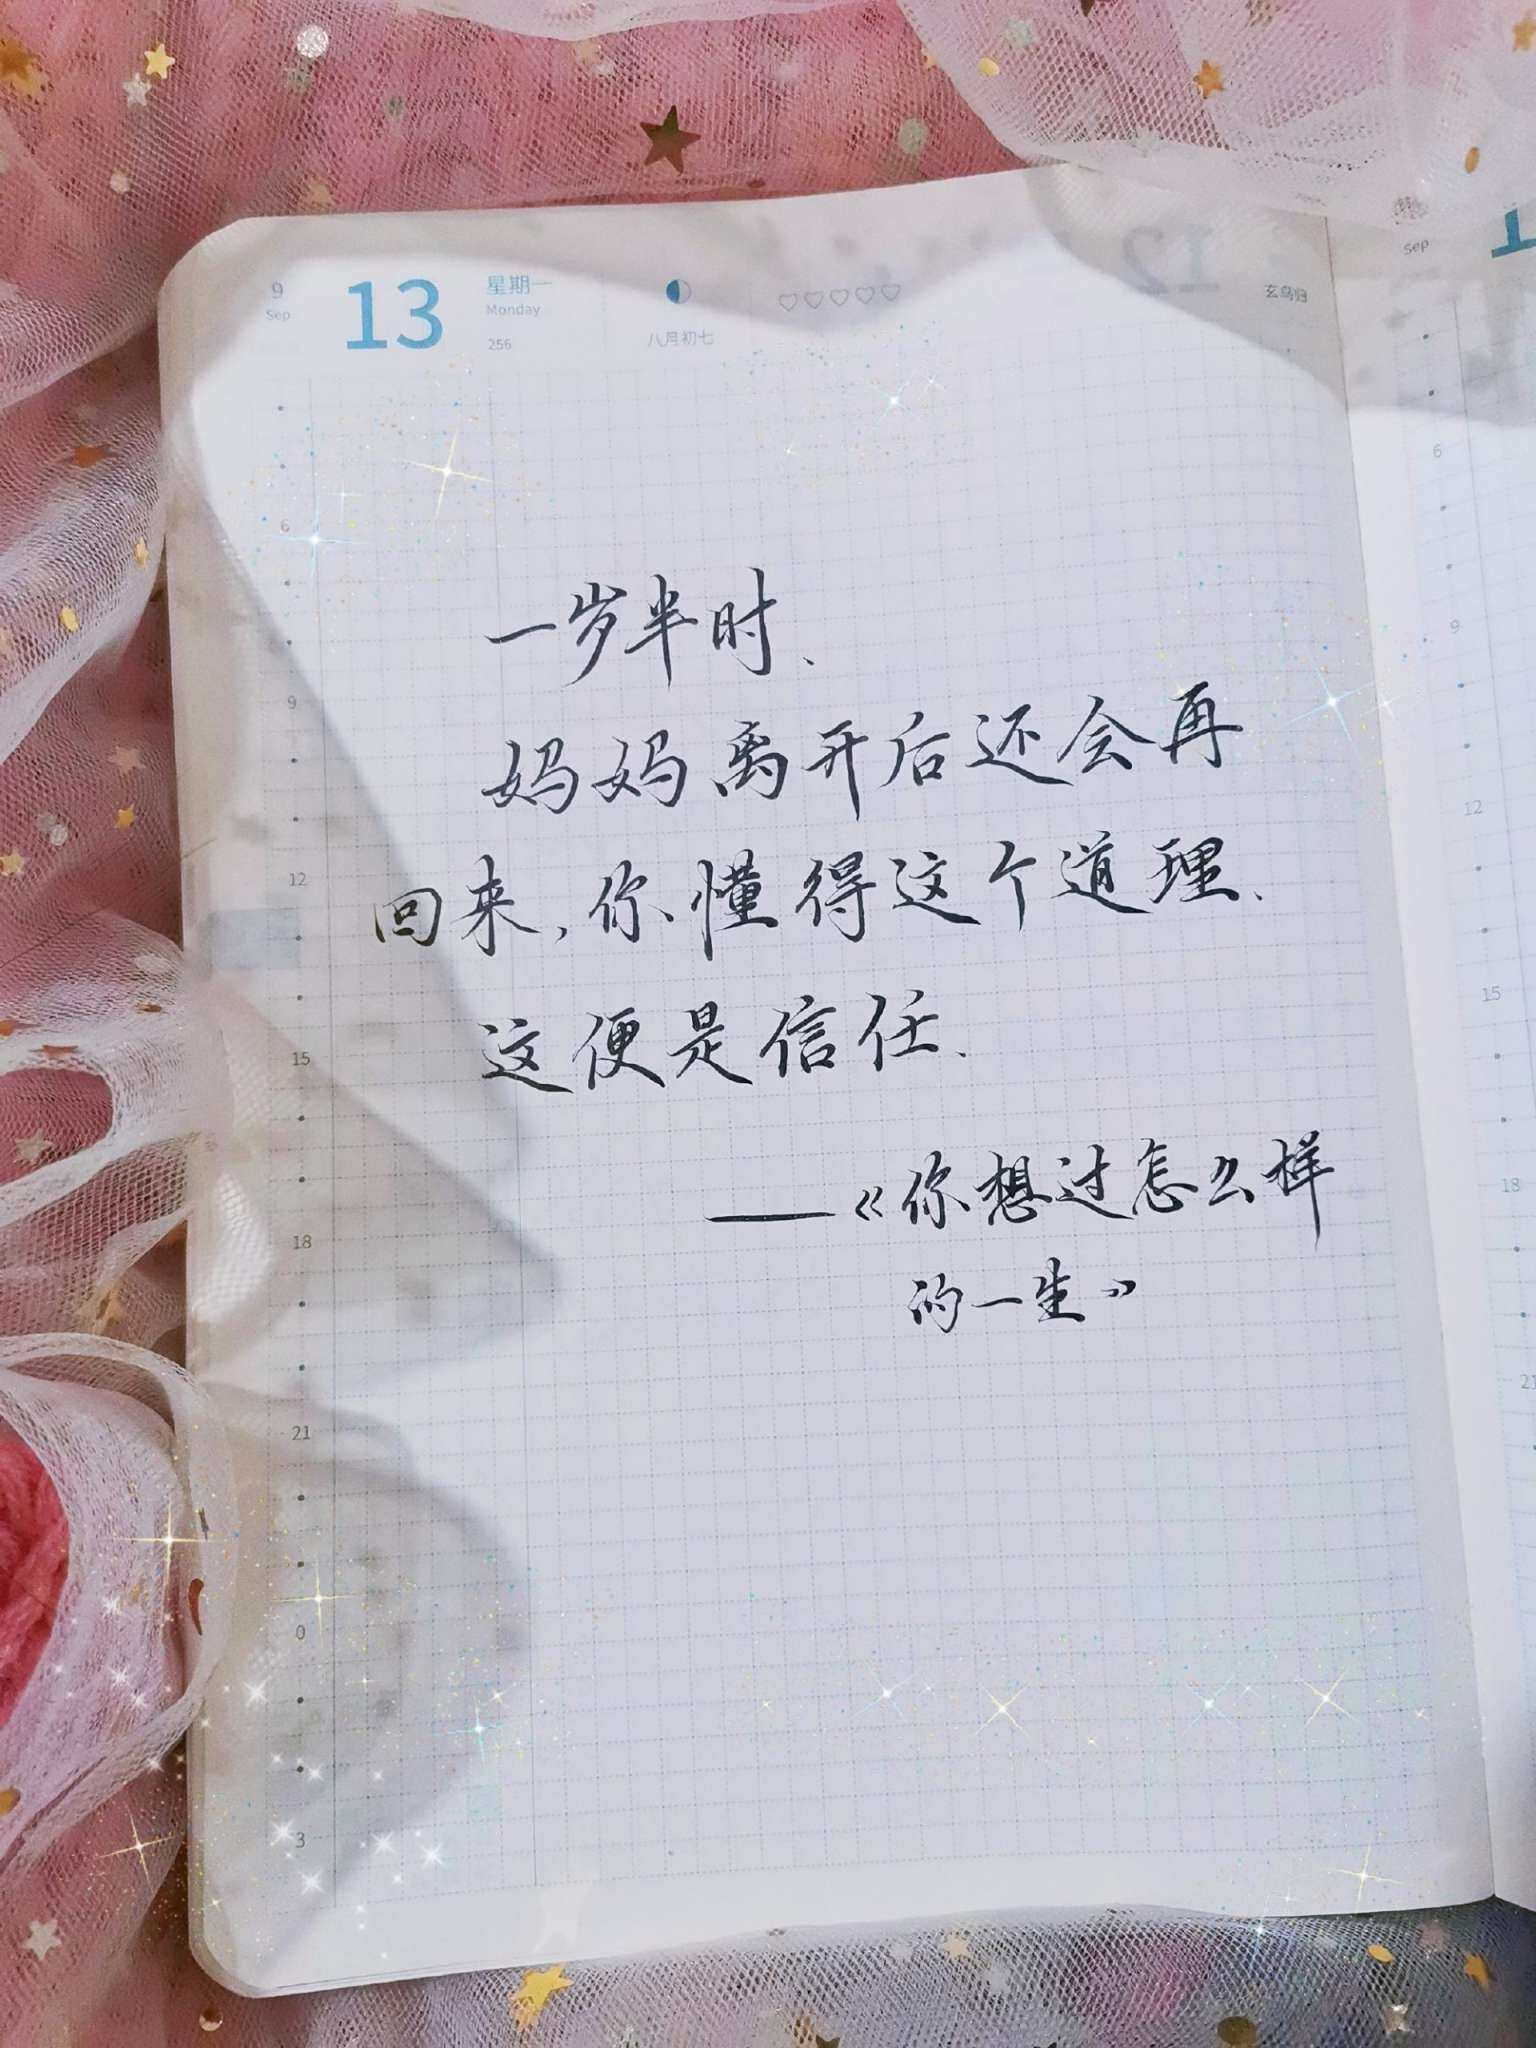 9
Sep
13
星期一
Monday
256
八月初七
玄鸟归
一岁半时、
妈妈离开后还会再
回来,你懂得这个道理、
这便是信任、
——《你想过怎么样
的一生》
6
9
12
15
18
21
0
3
Sep
6
9
12
15
18
21